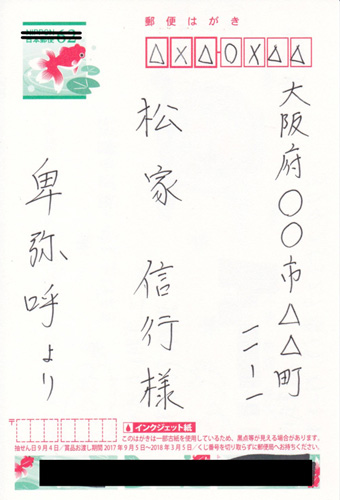 郵便はがき
△X△○X△△
大阪府○○市△△町
一一ー一
松家 信行様
卑弥呼より
日本郵便 62
〒
インクジェット紙
このはがきは一部古紙を使用しているため、黒点等が見える場合があります。
抽せん日9月4日/賞品お渡し期間2017年9月5日~2018年3月5日/くじ番号を切り取らずに郵便局へお持ちください。